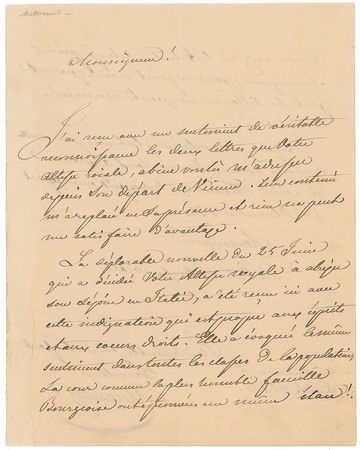 Metternich
Monseigneur!
J'ai reçu avec un sentiment de véritable
reconnoissance les deux lettres que Votre
Altesse roiale, a bien voulu m'adresser
depuis Son départ de Vienne. Leur contenu
m'a replacé en Sa présence et rien ne peut
me satisfaire d'avantage.
La déplorable nouvelle du 25 Juin
qui a décidé Votre Altesse royale à abréger
son séjour en Italie, a été reçue ici avec
cette indignation qui est propre aux esprits
et aux coeurs droits. Elle a évoqué le même
sentiment dans toutes les classes de la population.
La cour comme la plus humble famille
Bourgeoise ont éprouvé un même élan!